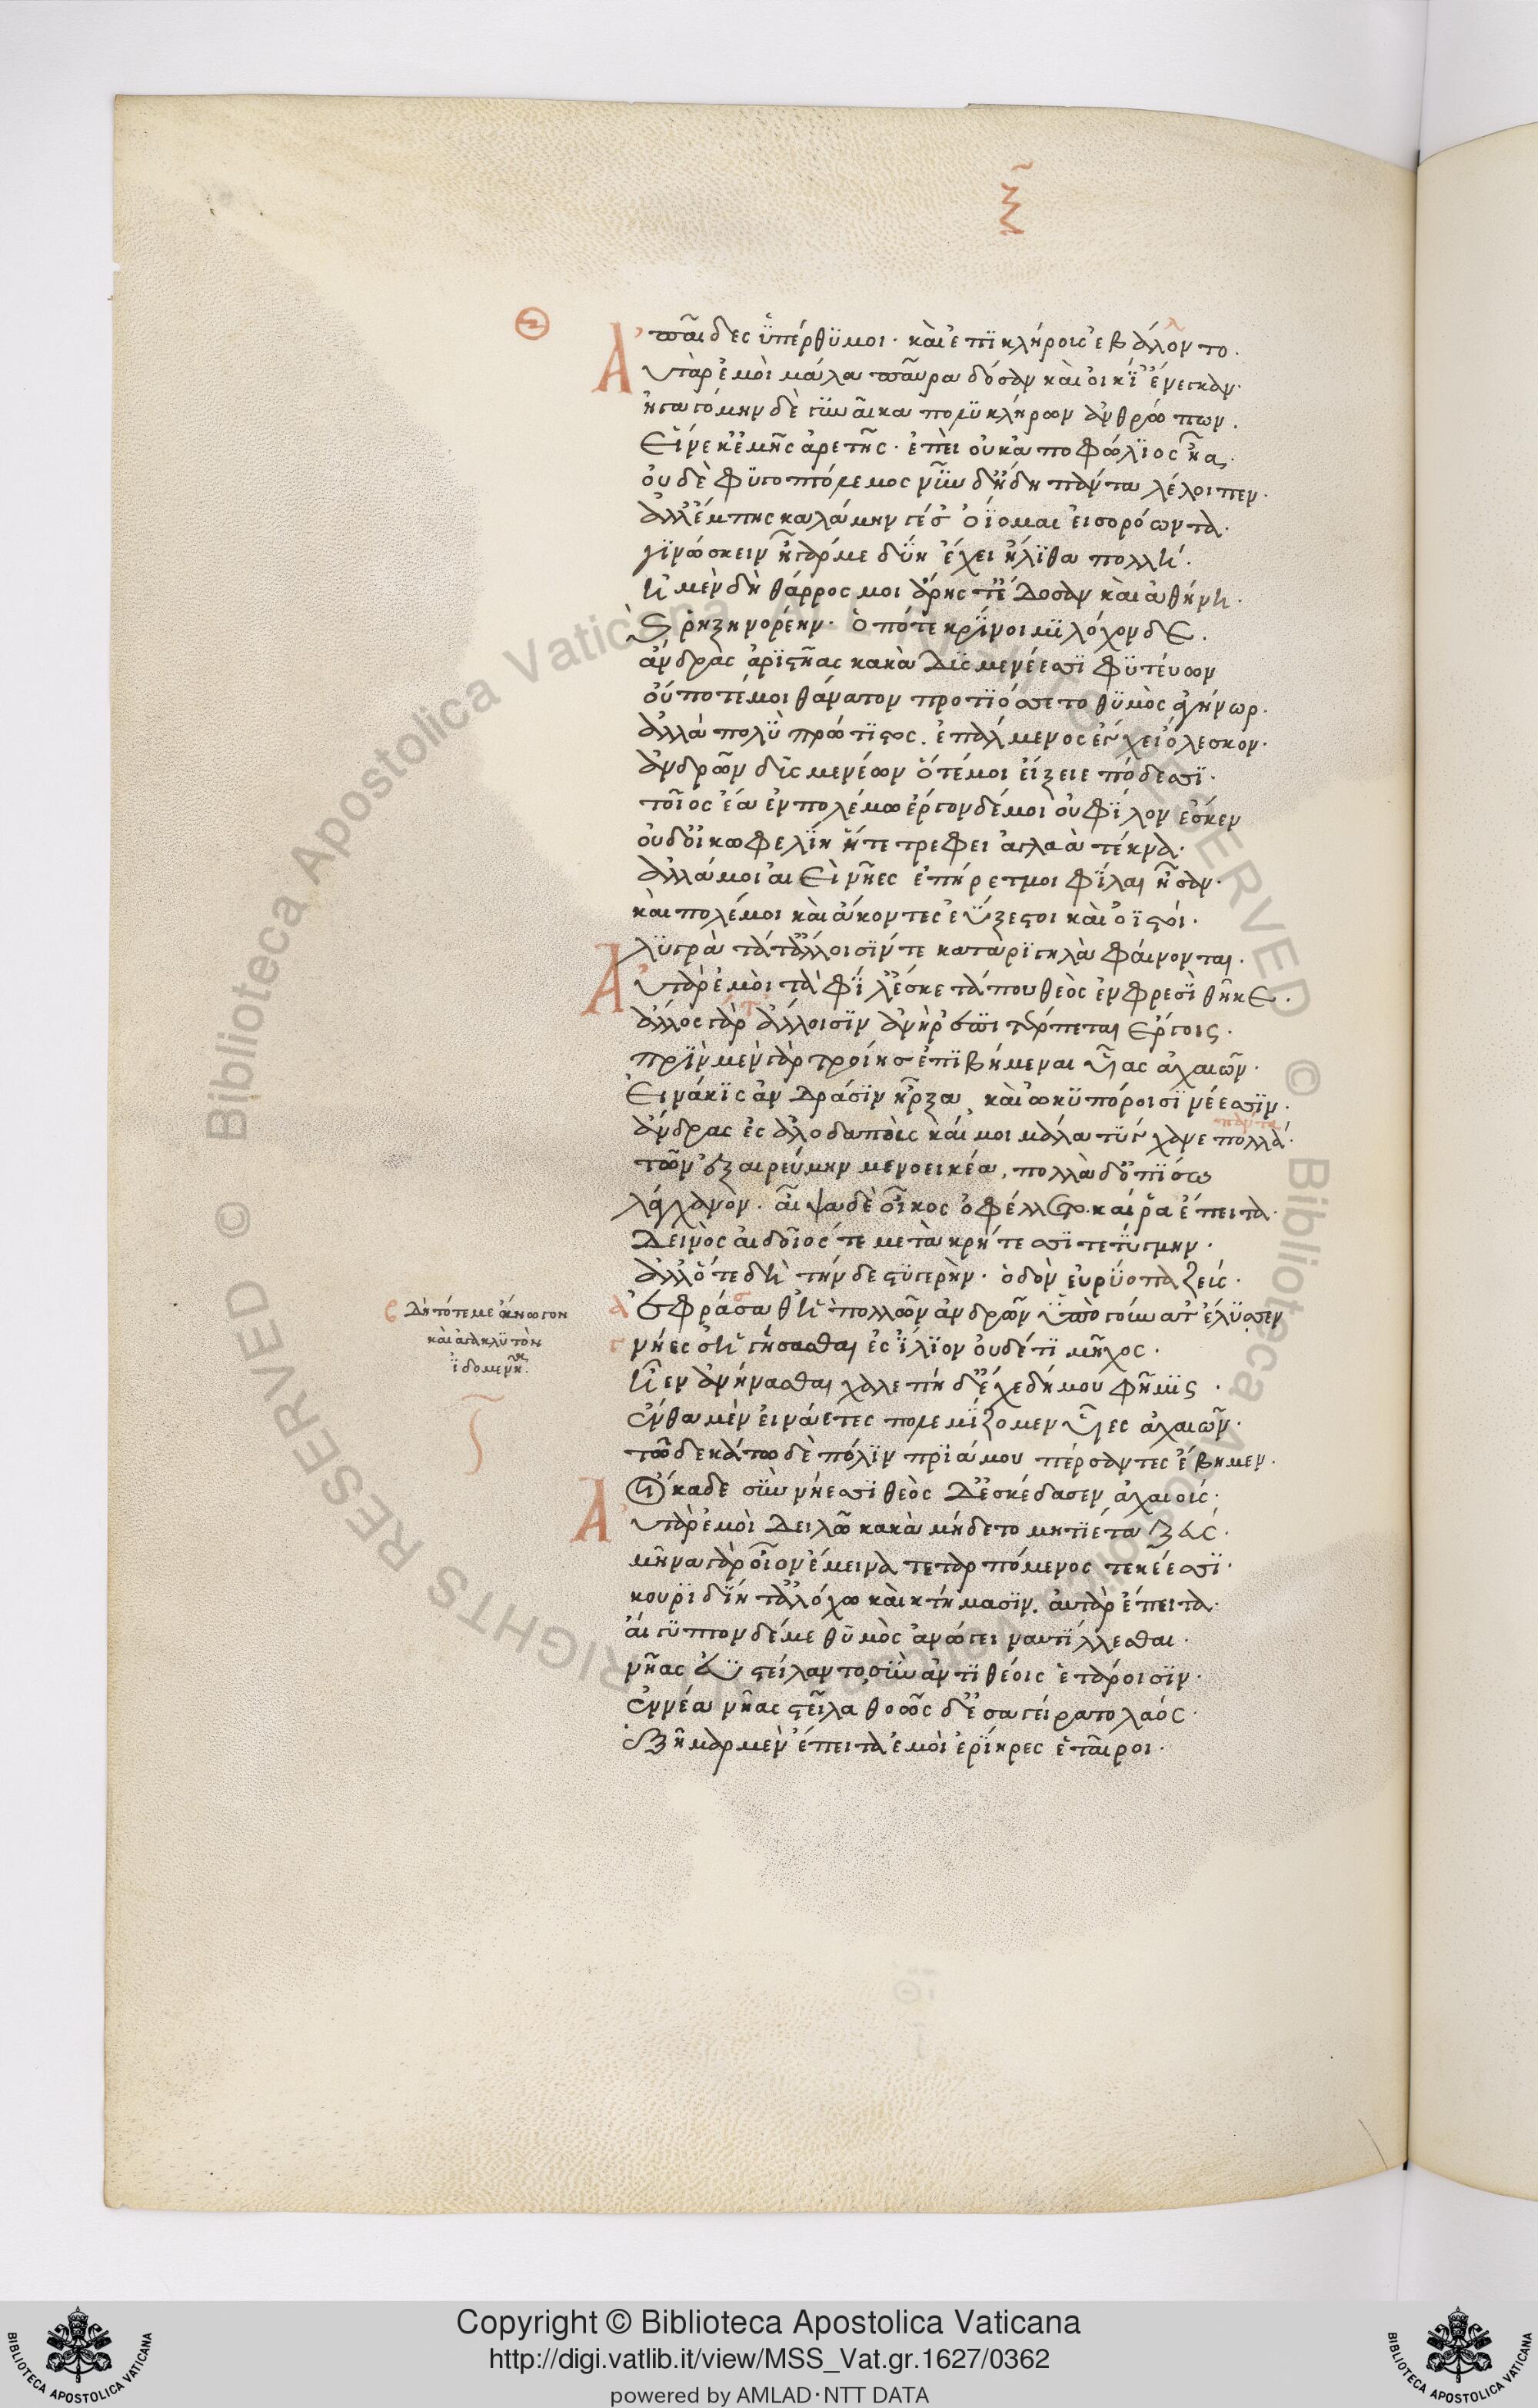 ξ
παῖδες ὑπέρθυμοι· καὶ ἐπὶ κλήροις ἐβάλλοντο.
Αὐτὰρ ἐμοὶ μάλα παῦρα δόσαν καὶ οἰκί' ἔνειμαν·
ἠγαγόμην δὲ γυναῖκα πολυκλήρων ἀνθρώπων.
Εἵνεκ' ἐμῆς ἀρετῆς· ἐπεὶ οὐκ ἀποφώλιος ἦα.
οὐδὲ φυγοπτόλεμος νῦν δ' ἤδη πάντα λέλοιπεν·
ἀλλ' ἔμπης καλάμην γέ σ' ὀΐομαι εἰσορόωντα.
γινώσκειν ἦ γάρ με δύη ἔχει ἤλιθα πολλή.
ἦ μὲν δὴ θάρρος μοι ἄρης τ' ἔδοσαν καὶ ἀθήνη.
καὶ ῥηξηνορέην· ὁπότε κρίνοιμι λόχονδε.
ἄνδρας ἀριστῆας κακὰ δυσμενέεσσι φυτεύων
οὔποτέ μοι θάνατον προτιόσσετο θυμὸς ἀγήνωρ.
ἀλλὰ πολὺ πρώτιστος. ἐπάλμενος ἔγχει ὄλεσκον·
ἀνδρῶν δυσμενέων ὅτέ μοι εἴξειε πόδεσσι.
τοῖος ἔα ἐν πολέμω ἔργον δέ μοι οὐ φίλον ἔσκεν
οὐδ' οἰκωφελίη ἥτε τρέφει ἀγλαὰ τέκνα.
ἀλλά μοι αἰεὶ νῆες ἐπήρετμοι φίλαι ἦσαν.
καὶ πολέμοι καὶ ἄκοντες ἐΰξεστοι καὶ ὀϊστοί.
λυγρὰ τάτ' ἄλλοισίν τε καταριγηλὰ φαίνονται.
Αὐτὰρ ἐμοὶ τὰ φίλ' ἔσκε τά που θεὸς ἐν φρεσὶ θῆκε.
ἄλλος γάρ τ' ἄλλοισιν ἀνὴρ ἐπιτέρπεται ἔργοις.
πρὶν μὲν γὰρ τροίης ἐπιβήμεναι υἷας ἀχαιῶν·
Εἰνάκις ἀνδράσιν ἦρξα, καὶ ὠκυπόροισι νέεσσιν.
πάντα
ἄνδρας ἐς ἀλλοδαποὺς καί μοι μάλα τύγχανε πολλά.
τῶν ἐξαιρεύμην μενοεικέα, πολλὰ δ' ὀπίσσω
λάγχανον. αἶψα δὲ οἶκος ὀφέλλετο. καί ῥα ἔπειτα.
Δεινὸς αἰδοῖός τε μετὰ κρήτεσσι τετύγμην.
ἀλλ' ὅτε δὴ τήνδε στυγερὴν· ὁδὸν εὐρύοπα ζεύς.
δὴ τότε με ἄνωγον
καὶ ἀγακλυτὸν
ἰδομενῆα.
ἐφράσαθ' ἣ πολλῶν ἀνδρῶν ὑπὸ γούνατ' ἔλυσεν
νήεσσ' ἡγήσασθαι ἐς ἴλιον οὐδέ τι μῆχος.
ἦεν ἀνήνασθαι χαλεπὴ δ' ἔχε δήμου φῆμις.
ἔνθα μὲν εἰνάετες πολεμίζομεν υἷες ἀχαιῶν.
τῶ δεκάτω δὲ πόλιν πριάμου πέρσαντες ἔβημεν.
οἴκαδε σὺν νήεσσι θεὸς δ' ἐσκέδασεν ἀχαιούς.
Αὐτὰρ ἐμοὶ δειλῶ κακὰ μήδετο μητιέτα ζεύς.
μῆνα γὰρ οἶον ἔμεινα τεταρπόμενος τεκέεσσι.
κουριδίη τ' ἀλόχω καὶ κτήμασιν. αὐτὰρ ἔπειτα.
αἴγυπτον δέ με θυμὸς ἀνώγει ναυτίλλεσθαι.
νῆας εὖ στείλαντο, σὺν ἀντιθέοις ἑτάροισιν.
ἐννέα νῆας στεῖλα θοῶς δ' ἐσαγείρατο λαός.
ἑξῆμαρ μὲν ἔπειτα ἐμοὶ ἐρίηρες ἑταῖροι.
Copyright © Biblioteca Apostolica Vaticana
http://digi.vatlib.it/view/MSS_Vat.gr.1627/0362
powered by AMLAD·NTT DATA
BIBLIOTECA APOSTOLICA VATICANA
BIBLIOTECA APOSTOLICA VATICANA
© Biblioteca Apostolica Vaticana ALL RIGHTS RESERVED © Biblioteca Apostolica Vaticana ALL RIGHTS RESERVED